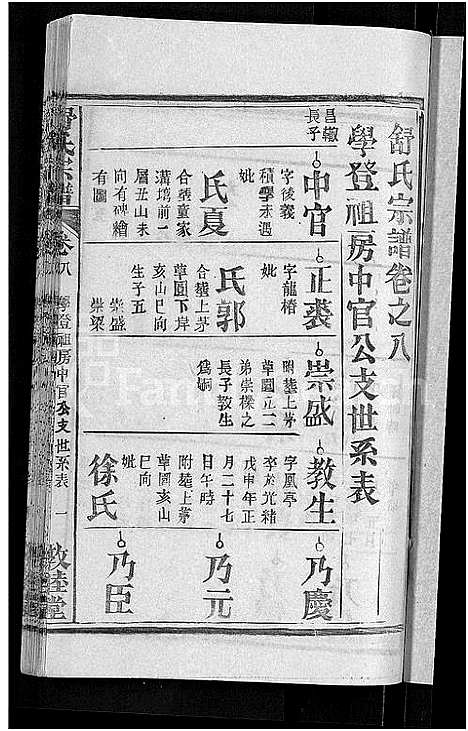 舒氏宗譜卷之八
學登祖房中官公支世系表
昌轍
長子
中官
字後義
積學未遇
妣
氏夏
合塟童家
溝塆前一
層丑山未
向有碑繪
有圖
正裘
字龍椿
妣
氏郭
合塟上茅
草園下岸
亥山巳向
生子五
崇盛
崇梁
崇盛
附塟上茅
草園立二
弟崇樑之
長子教生
為嗣
教生
字鳳亭
卒於光緒
戊申年正
月二十七
日午時
附塟上茅
草園亥山
巳向
妣
徐氏
乃慶
乃元
乃臣
舒氏宗譜
卷八
學登祖房中官公支世系表
一
敦睦堂